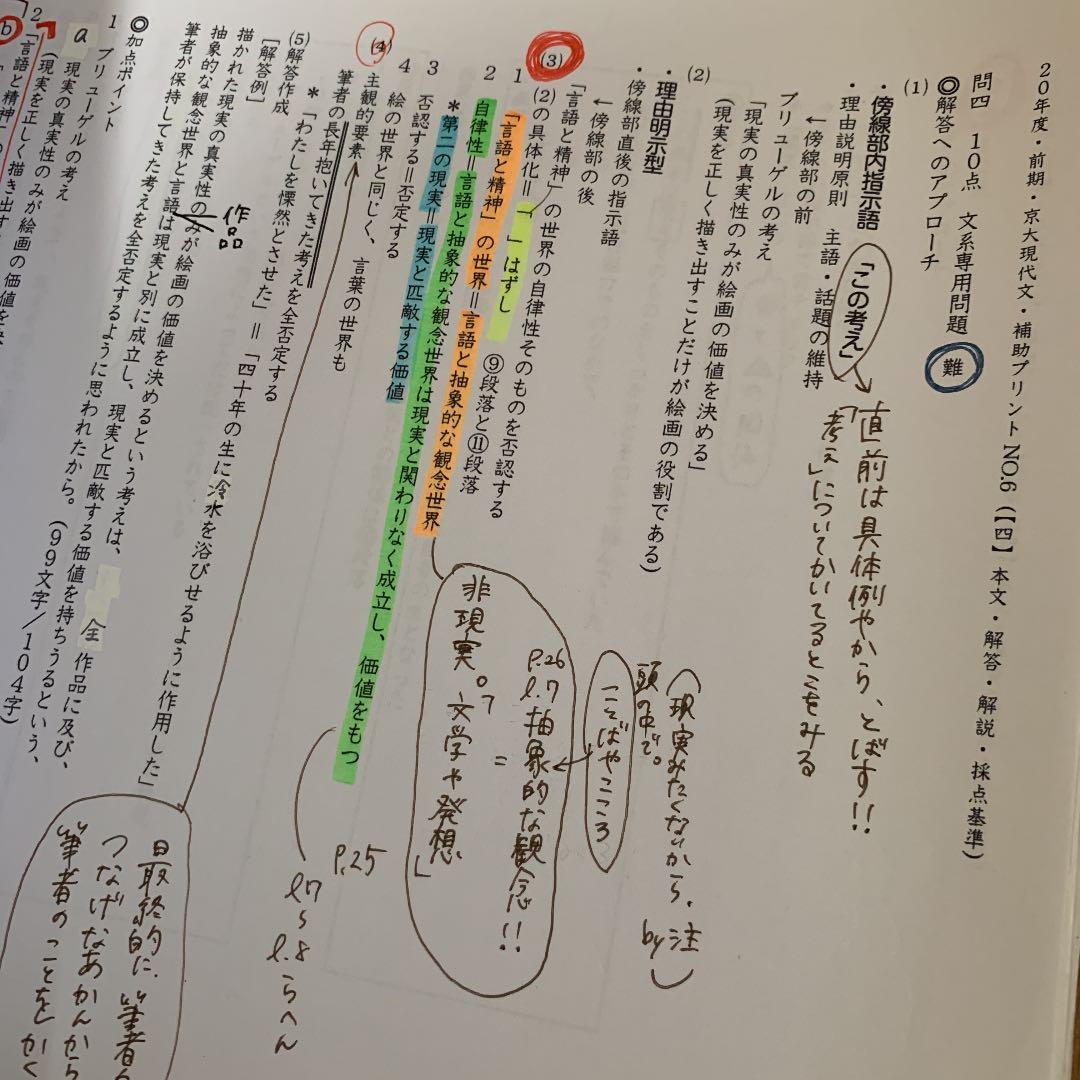 20年度・前期・京大現代文・補助プリントNO.6(【四】本文・解答・解説・採点基準)
問四 10点 文系専用問題 難
◎解答へのアプローチ
(1)
・傍線部内指示語 「この考え」
・理由説明原則 主語・話題の維持
←傍線部の前
ブリューゲルの考え
「現実の真実性のみが絵画の価値を決める」
(現実を正しく描き出すことだけが絵画の役割である)
直前は具体例やから、とばす!!
「考え」についてかいてるとこをみる
(2)
・理由明示型
・傍線部直後の指示語
←傍線部の後
「言語と精神」の世界の自律性そのものを否認する
(現実みたくないから、注 by
頭の中で。
ことばやこころ
(3)
(2)の具体化=「 」はずし ⑨段落と⑪段落
1 「言語と精神」の世界=言語と抽象的な観念世界
2 自律性=言語と抽象的な観念世界は現実と関わりなく成立し、価値をもつ
*第二の現実=現実と匹敵する価値
3 否認する=否定する
4 絵の世界と同じく、言葉の世界も
P.26
l.7 抽象的な観念!!
=
非現実。「文学や発想」
P.25
l7〜l.8らへん
(4)
主観的要素
筆者の長年抱いてきた考えを全否定する
*「わたしを慄然とさせた」=「四十年の生に冷水を浴びせるように作用した」
最終的に、筆者
つなげなあかんから
筆者のことをかく
(5)解答作成
[解答例]
描かれた現実の真実性のみが絵画の価値を決めるという考えは、全作品に及び、
作品
抽象的な観念世界と言語は現実と別に成立し、現実と匹敵する価値を持ちうるという、
筆者が保持してきた考えを全否定するように思われたから。(99文字/104字)
◎加点ポイント
1 ブリューゲルの考え
a 現実の真実性のみが絵画の価値を決
(現実を正しく描き出す
2 「言語と精神」の
b